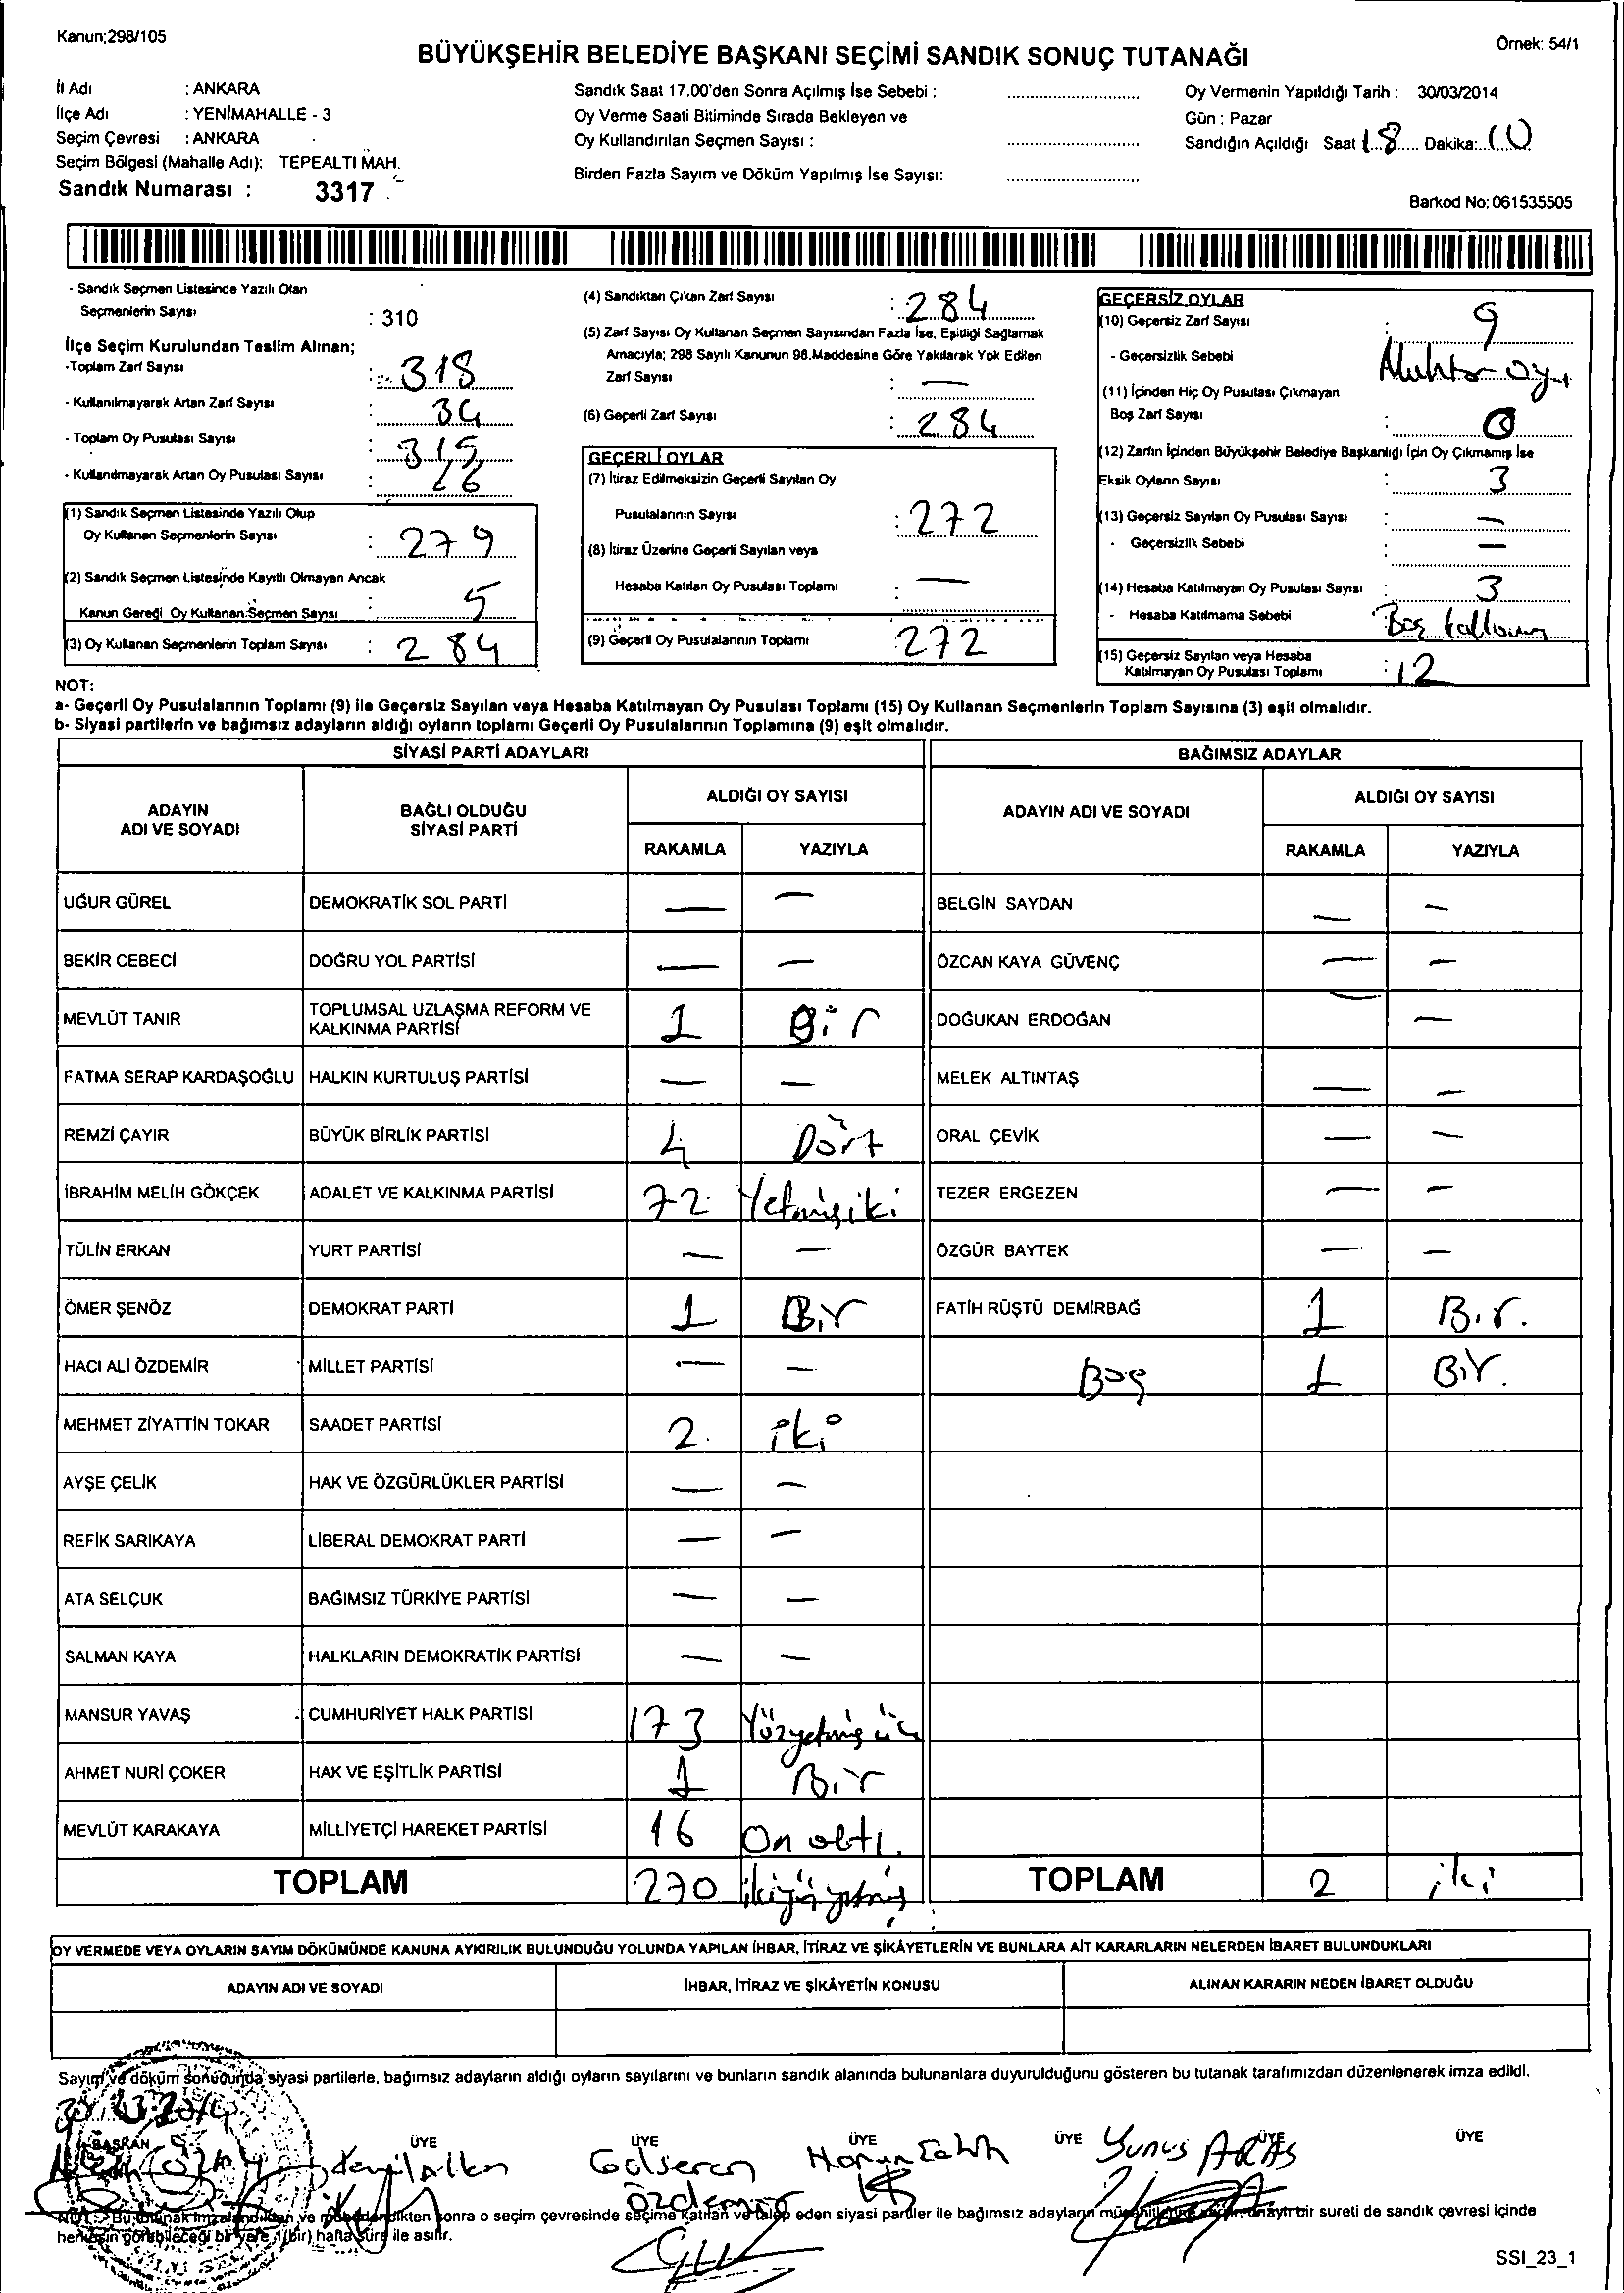 Kanun;298/105
Örnek: 54/1
BÜYÜKŞEHİR BELEDİYE BAŞKANI SEÇİMİ SANDIK SONUÇ TUTANAĞI
İl Adı : ANKARA
İlçe Adı : YENİMAHALLE - 3
Seçim Çevresi : ANKARA
Seçim Bölgesi (Mahalle Adı): TEPEALTI MAH.
Sandık Numarası : 3317
Sandık Saat 17.00'den Sonra Açılmış İse Sebebi :
Oy Verme Saati Bitiminde Sırada Bekleyen ve
Oy Kullandırılan Seçmen Sayısı :
Birden Fazla Sayım ve Döküm Yapılmış İse Sayısı:
Oy Vermenin Yapıldığı Tarih : 30/03/2014
Gün : Pazar
Sandığın Açıldığı Saat 18 Dakika: 10
Barkod No: 061535505
- Sandık Seçmen Listesinde Yazılı Olan
Seçmenlerin Sayısı : 310
İlçe Seçim Kurulundan Teslim Alınan;
-Toplam Zarf Sayısı : 318
- Kullanılmayarak Artan Zarf Sayısı : 34
- Toplam Oy Pusulası Sayısı : 315
- Kullanılmayarak Artan Oy Pusulası Sayısı : 26
(1) Sandık Seçmen Listesinde Yazılı Olup
Oy Kullanan Seçmenlerin Sayısı : 279
(2) Sandık Seçmen Listesinde Kayıtlı Olmayan Ancak
Kanun Gereği Oy Kullanan Seçmen Sayısı : 5
(3) Oy Kullanan Seçmenlerin Toplam Sayısı : 284
(4) Sandıktan Çıkan Zarf Sayısı : 284
(5) Zarf Sayısı Oy Kullanan Seçmen Sayısından Fazla İse, Eşitliği Sağlamak
Amacıyla; 298 Sayılı Kanunun 98.Maddesine Göre Yakılarak Yok Edilen
Zarf Sayısı : —
(6) Geçerli Zarf Sayısı : 284
GEÇERLİ OYLAR
(7) İtiraz Edilmeksizin Geçerli Sayılan Oy
Pusulalarının Sayısı : 272
(8) İtiraz Üzerine Geçerli Sayılan veya
Hesaba Katılan Oy Pusulası Toplamı : —
(9) Geçerli Oy Pusulalarının Toplamı : 272
GEÇERSİZ OYLAR
(10) Geçersiz Zarf Sayısı : 9
- Geçersizlik Sebebi Muhtar oyu
(11) İçinden Hiç Oy Pusulası Çıkmayan
Boş Zarf Sayısı : 0
(12) Zarfın İçinden Büyükşehir Belediye Başkanlığı İçin Oy Çıkmamış İse
Eksik Oyların Sayısı : 3
(13) Geçersiz Sayılan Oy Pusulası Sayısı : —
- Geçersizlik Sebebi : —
(14) Hesaba Katılmayan Oy Pusulası Sayısı : 3
- Hesaba Katılmama Sebebi Boş
(15) Geçersiz Sayılan veya Hesaba
Katılmayan Oy Pusulası Toplamı : 12
NOT:
a- Geçerli Oy Pusulalarının Toplamı (9) ile Geçersiz Sayılan veya Hesaba Katılmayan Oy Pusulası Toplamı (15) Oy Kullanan Seçmenlerin Toplam Sayısına (3) eşit olmalıdır.
b- Siyasi partilerin ve bağımsız adayların aldığı oyların toplamı Geçerli Oy Pusulalarının Toplamına (9) eşit olmalıdır.
SİYASİ PARTİ ADAYLARI
BAĞIMSIZ ADAYLAR
ADAYIN
ADI VE SOYADI
BAĞLI OLDUĞU
SİYASİ PARTİ
ALDIĞI OY SAYISI
RAKAMLA YAZIYLA
ADAYIN ADI VE SOYADI
ALDIĞI OY SAYISI
RAKAMLA YAZIYLA
UĞUR GÜREL DEMOKRATİK SOL PARTİ — — BELGİN SAYDAN — —
BEKİR CEBECİ DOĞRU YOL PARTİSİ — — ÖZCAN KAYA GÜVENÇ — —
MEVLÜT TANIR TOPLUMSAL UZLAŞMA REFORM VE
KALKINMA PARTİSİ 1 Bir DOĞUKAN ERDOĞAN — —
FATMA SERAP KARDAŞOĞLU HALKIN KURTULUŞ PARTİSİ — — MELEK ALTINTAŞ — —
REMZİ ÇAYIR BÜYÜK BİRLİK PARTİSİ 4 Dört ORAL ÇEVİK — —
İBRAHİM MELİH GÖKÇEK ADALET VE KALKINMA PARTİSİ 72 Yetmişiki TEZER ERGEZEN — —
TÜLİN ERKAN YURT PARTİSİ — — ÖZGÜR BAYTEK — —
ÖMER ŞENÖZ DEMOKRAT PARTİ 1 Bir FATİH RÜŞTÜ DEMİRBAĞ 1 Bir.
HACI ALİ ÖZDEMİR MİLLET PARTİSİ — — Boş 1 Bir.
MEHMET ZİYATTİN TOKAR SAADET PARTİSİ 2. iki
AYŞE ÇELİK HAK VE ÖZGÜRLÜKLER PARTİSİ — —
REFİK SARIKAYA LİBERAL DEMOKRAT PARTİ — —
ATA SELÇUK BAĞIMSIZ TÜRKİYE PARTİSİ — —
SALMAN KAYA HALKLARIN DEMOKRATİK PARTİSİ — —
MANSUR YAVAŞ CUMHURİYET HALK PARTİSİ 173 Yüzyetmiş üç
AHMET NURİ ÇOKER HAK VE EŞİTLİK PARTİSİ 1 Bir
MEVLÜT KARAKAYA MİLLİYETÇİ HAREKET PARTİSİ 16 On altı.
TOPLAM 270 ikiyüz yetmiş TOPLAM 2 iki
OY VERMEDE VEYA OYLARIN SAYIM DÖKÜMÜNDE KANUNA AYKIRILIK BULUNDUĞU YOLUNDA YAPILAN İHBAR, İTİRAZ VE ŞİKÂYETLERİN VE BUNLARA AİT KARARLARIN NELERDEN İBARET BULUNDUKLARI
ADAYIN ADI VE SOYADI İHBAR, İTİRAZ VE ŞİKÂYETİN KONUSU ALINAN KARARIN NEDEN İBARET OLDUĞU
Sayım ve döküm sonucunda siyasi partilerle, bağımsız adayların aldığı oyların sayılarını ve bunların sandık alanında bulunanlara duyurulduğunu gösteren bu tutanak tarafımızdan düzenlenerek imza edildi.
BAŞKAN ÜYE ÜYE ÜYE ÜYE ÜYE ÜYE
Gülseren Özdemir
Yunus ARAS
NOT: Bu tutanak imzalandıktan ve mühürlendikten sonra o seçim çevresinde seçime katılan ve talep eden siyasi partiler ile bağımsız adayların bir sureti de sandık çevresi içinde
herkesin görebileceği bir yere 1(bir) hafta süre ile asılır.
SSI_23_1